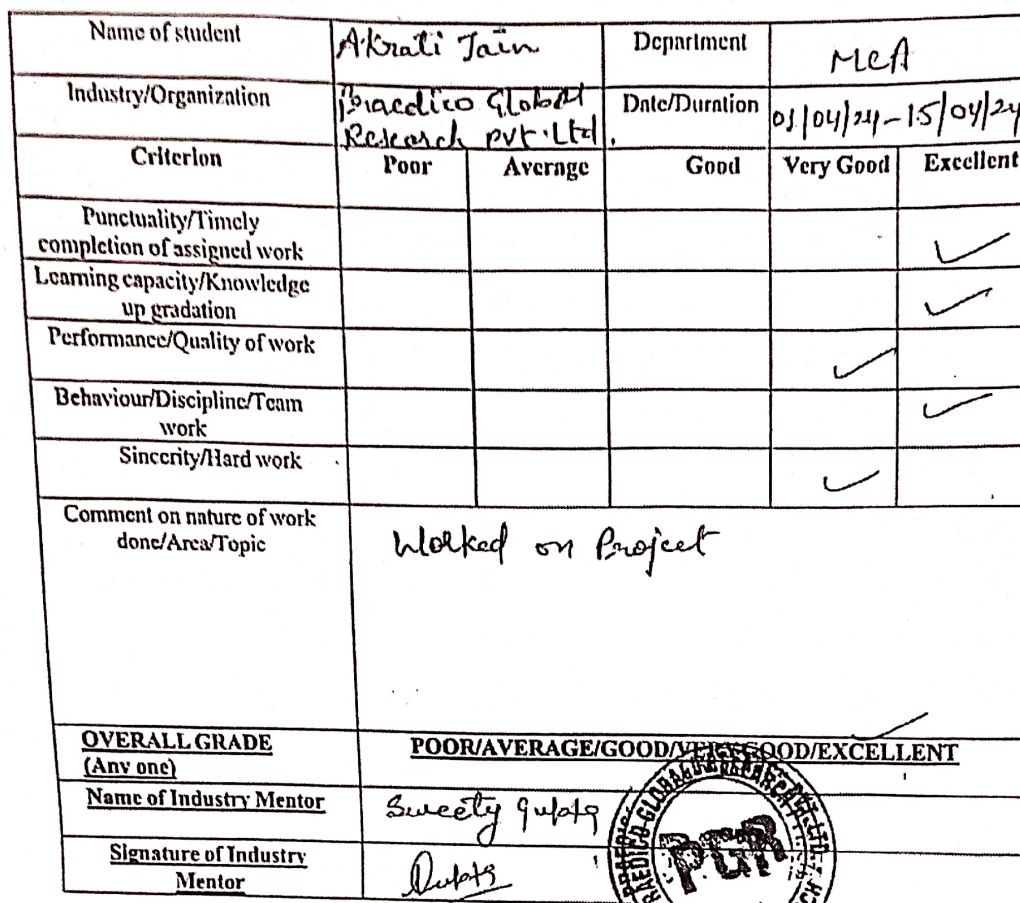 Name of student Akrati Jain Department MCA
Industry/Organization Praedico Global Date/Duration 01/04/24-15/04/24
Research Pvt. Ltd.
Criterion Poor Average Good Very Good Excellent
Punctuality/Timely
completion of assigned work ✓
Learning capacity/Knowledge
up gradation ✓
Performance/Quality of work ✓
Behaviour/Discipline/Team
work ✓
Sincerity/Hard work ✓
Comment on nature of work
done/Area/Topic
Worked on Project
OVERALL GRADE POOR/AVERAGE/GOOD/VERY GOOD/EXCELLENT
(Any one)
Name of Industry Mentor Sweety Gupta
Signature of Industry
Mentor Gupta
PRAEDICO GLOBAL RESEARCH PVT. LTD.
PGR